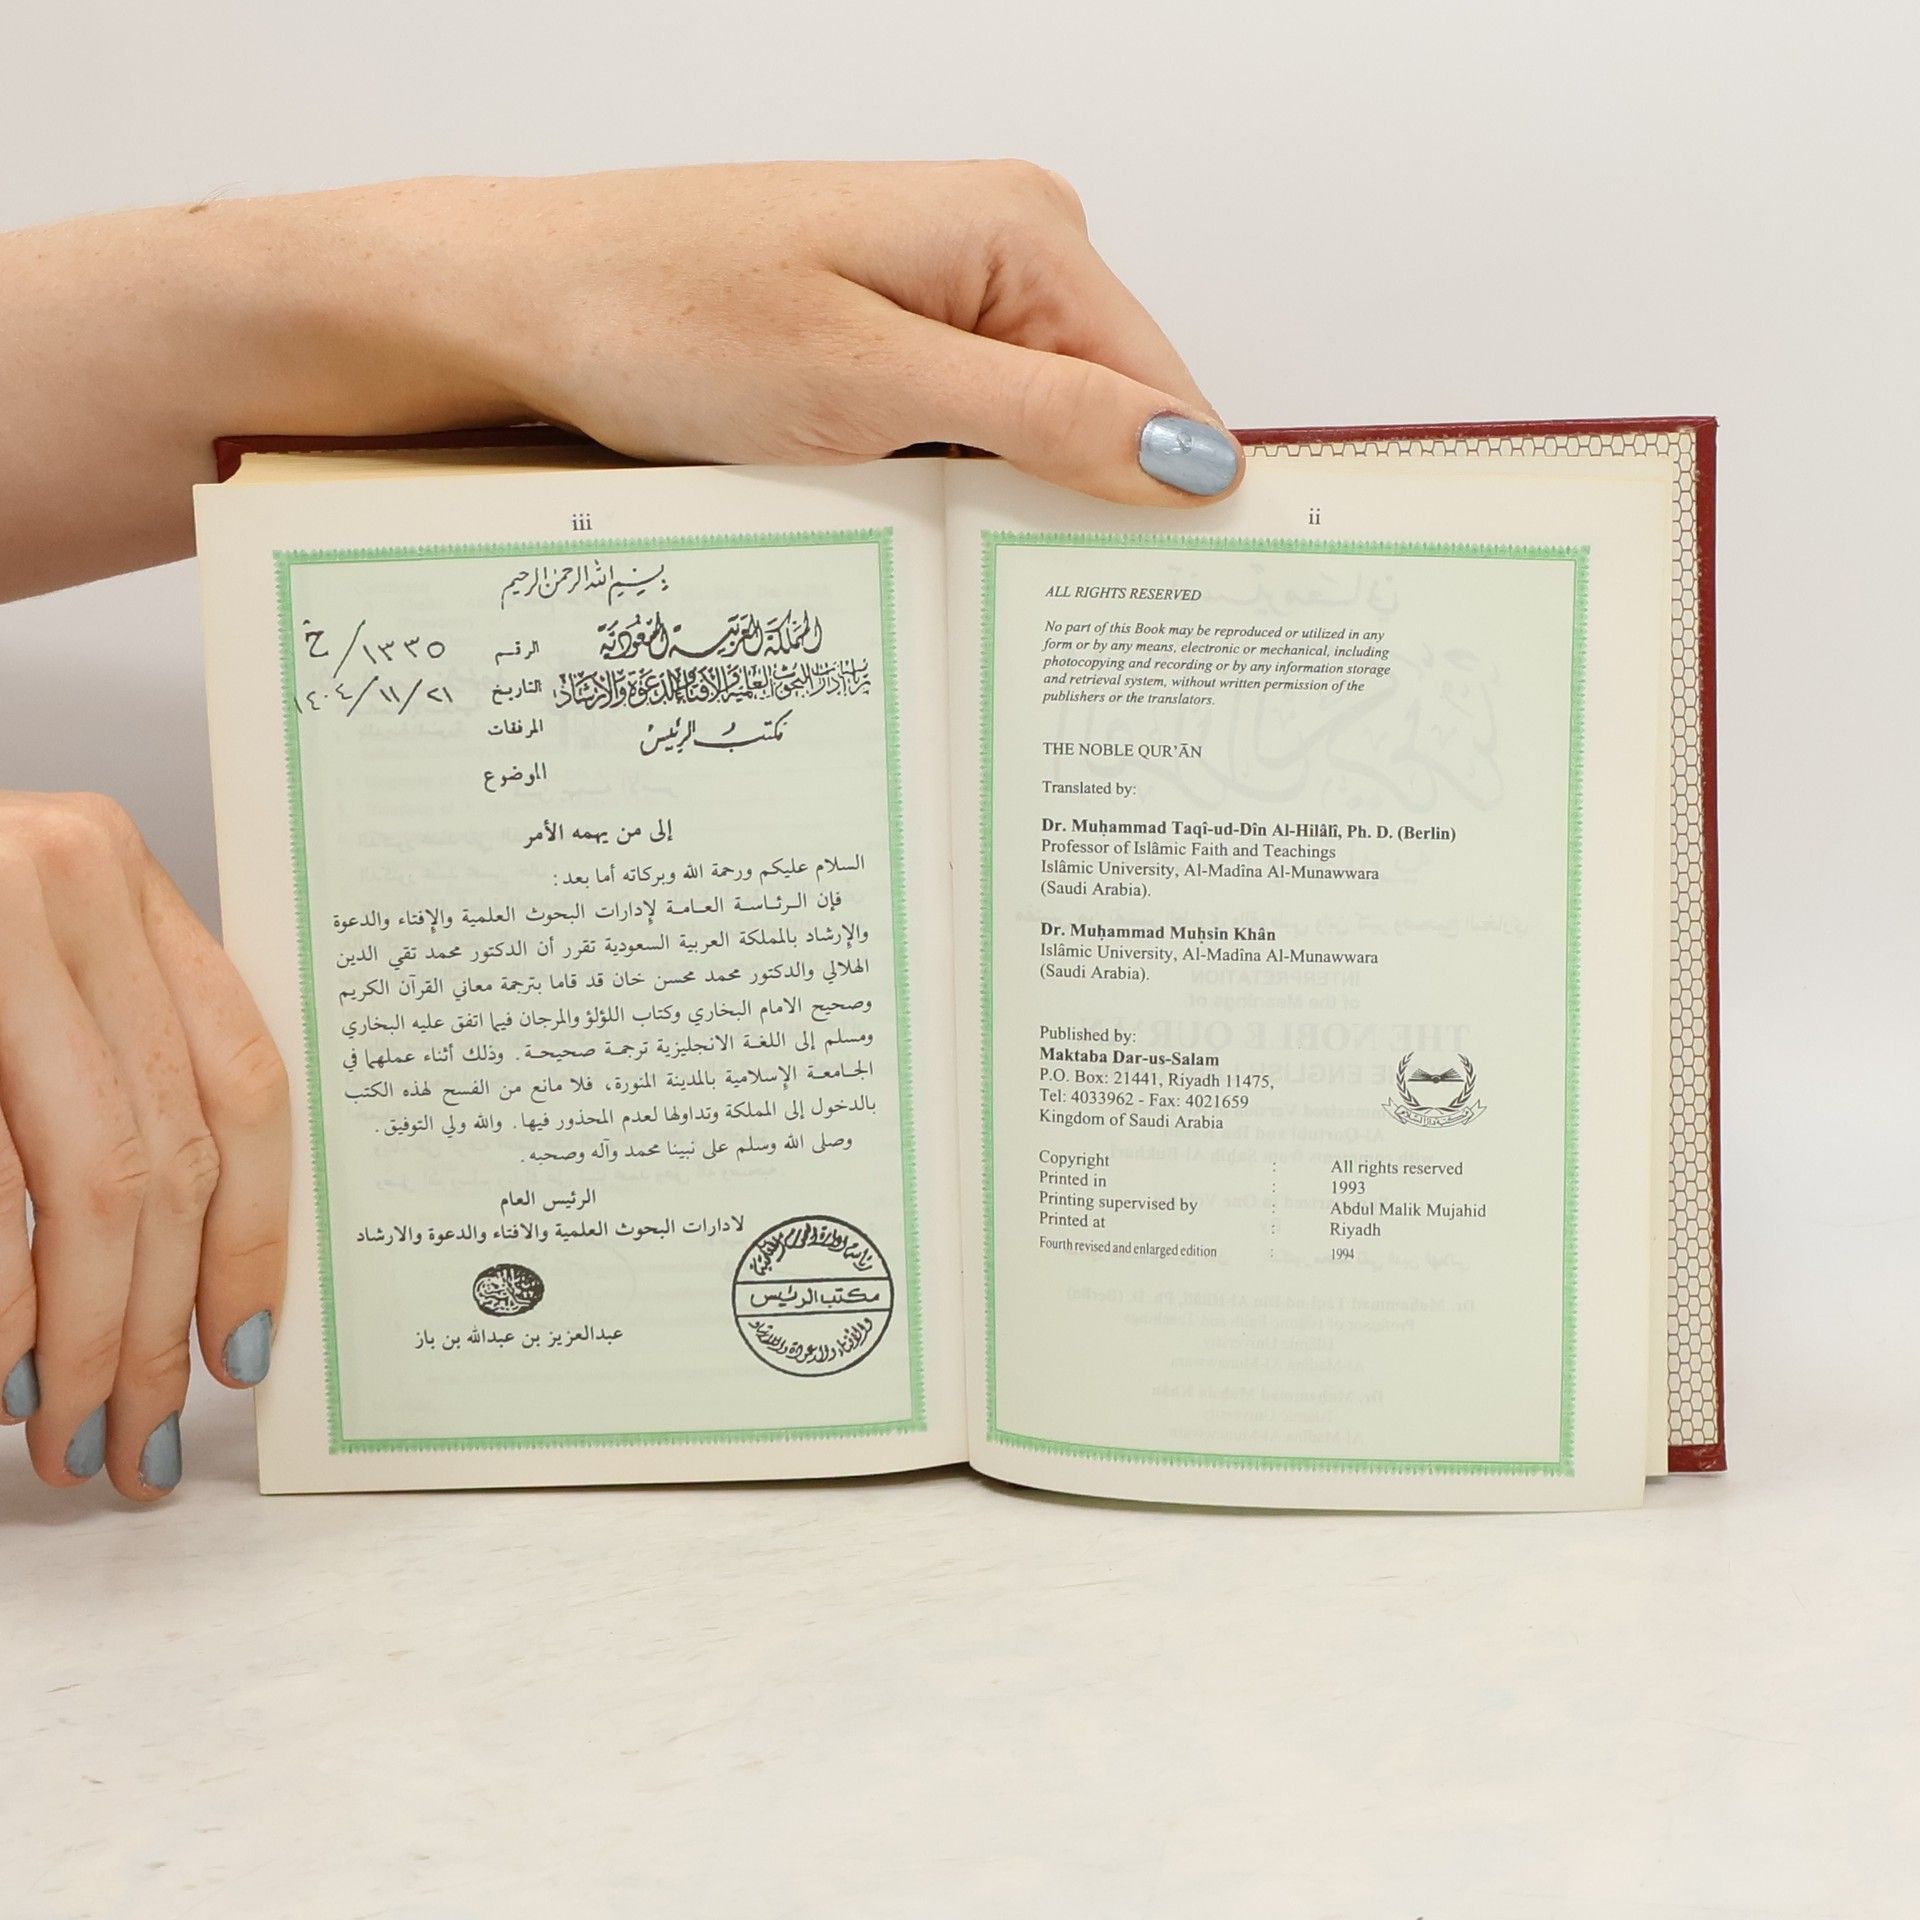 ii
ALL RIGHTS RESERVED
No part of this Book may be reproduced or utilized in any
form or by any means, electronic or mechanical, including
photocopying and recording or by any information storage
and retrieval system, without written permission of the
publishers or the translators.
THE NOBLE QUR’ĀN
Translated by:
Dr. Muḥammad Taqî-ud-Dîn Al-Hilâlî, Ph. D. (Berlin)
Professor of Islâmic Faith and Teachings
Islâmic University, Al-Madîna Al-Munawwara
(Saudi Arabia).
Dr. Muḥammad Muḥsin Khân
Islâmic University, Al-Madîna Al-Munawwara
(Saudi Arabia).
Published by:
Maktaba Dar-us-Salam
P.O. Box: 21441, Riyadh 11475,
Tel: 4033962 - Fax: 4021659
Kingdom of Saudi Arabia
Copyright : All rights reserved
Printed in : 1993
Printing supervised by : Abdul Malik Mujahid
Printed at : Riyadh
Fourth revised and enlarged edition : 1994
iii
بسم الله الرحمن الرحيم
المملكة العربية السعودية
رئاسة إدارات البحوث العلمية والإفتاء والدعوة والإرشاد
مكتب الرئيس
الرقم ١٣٣٥/خ
التاريخ ٢١/١١/١٤٠٤
المرفقات
الموضوع
إلى من يهمه الأمر
السلام عليكم ورحمة الله وبركاته أما بعد:
فإن الرئاسة العامة لإدارات البحوث العلمية والإفتاء والدعوة
والإرشاد بالمملكة العربية السعودية تقرر أن الدكتور محمد تقي الدين
الهلالي والدكتور محمد محسن خان قد قاما بترجمة معاني القرآن الكريم
وصحيح الامام البخاري وكتاب اللؤلؤ والمرجان فيما اتفق عليه البخاري
ومسلم إلى اللغة الانجليزية ترجمة صحيحة. وذلك أثناء عملهما في
الجامعة الإسلامية بالمدينة المنورة، فلا مانع من الفسح لهذه الكتب
بالدخول إلى المملكة وتداولها لعدم المحذور فيها. والله ولي التوفيق.
وصلى الله وسلم على نبينا محمد وآله وصحبه.
الرئيس العام
لادارات البحوث العلمية والافتاء والدعوة والارشاد
مكتب الرئيس
عبدالعزيز بن عبدالله بن باز